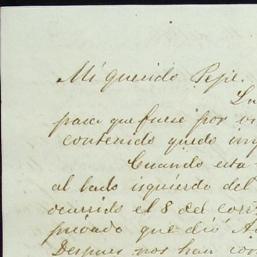 Mi querido Pepe.
para que fuese por
contenido quedo
Cuando esta
al lado izquierdo del
ocurrido el 8 del
privado que dió
Despues nos han